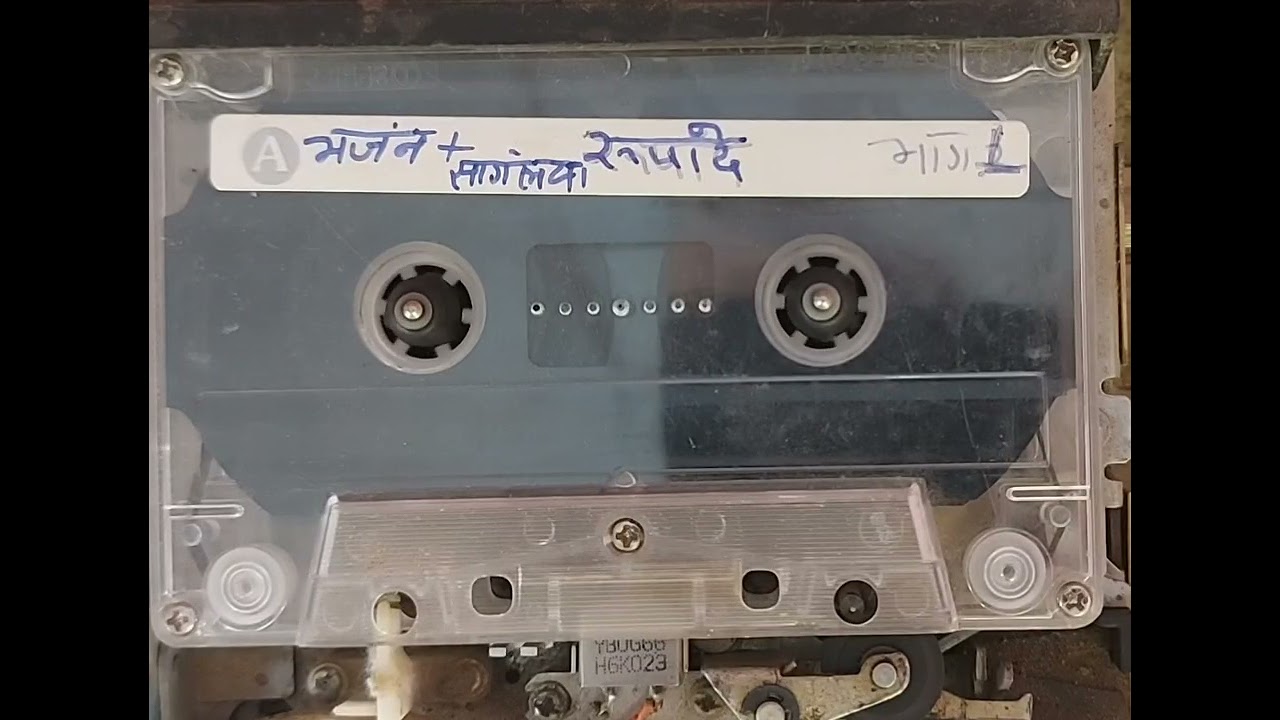 A भजंन + सागंलवा रूपादे भाग 1
YBUG66
H6K023